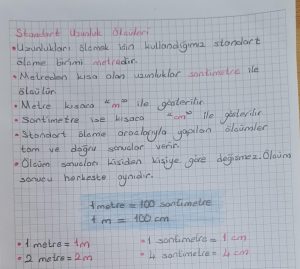 Standart Uzunluk Ölçüleri
• Uzunlukları ölçmek için kullandığımız standart
ölçme birimi metredir.
• Metreden kısa olan uzunluklar santimetre ile
ölçülür.
• Metre kısaca "m" ile gösterilir.
• Santimetre ise kısaca "cm" ile gösterilir.
• Standart ölçme araçlarıyla yapılan ölçümler
tam ve doğru sonuçlar verir.
• Ölçüm sonuçları kişiden kişiye göre değişmez. Ölçüm
sonucu herkeste aynıdır.
1 metre = 100 santimetre
1 m = 100 cm
• 1 metre = 1m • 1 santimetre = 1 cm
• 2 metre = 2m • 4 santimetre = 4 cm